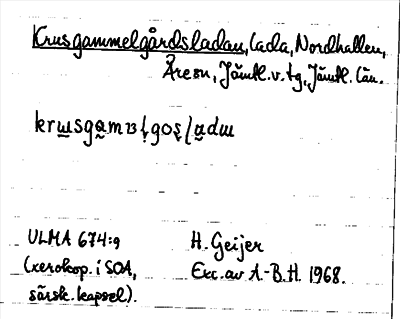 Krusgammelgårdsladan, lada, Nordhallen,
Åre sn, Jämtl. v. tg, Jämtl. län.
ULMA 674:9
H. Geijer
(xerokop. i SOA,
Exc. av A-B. H. 1968.
särsk. kapsel).